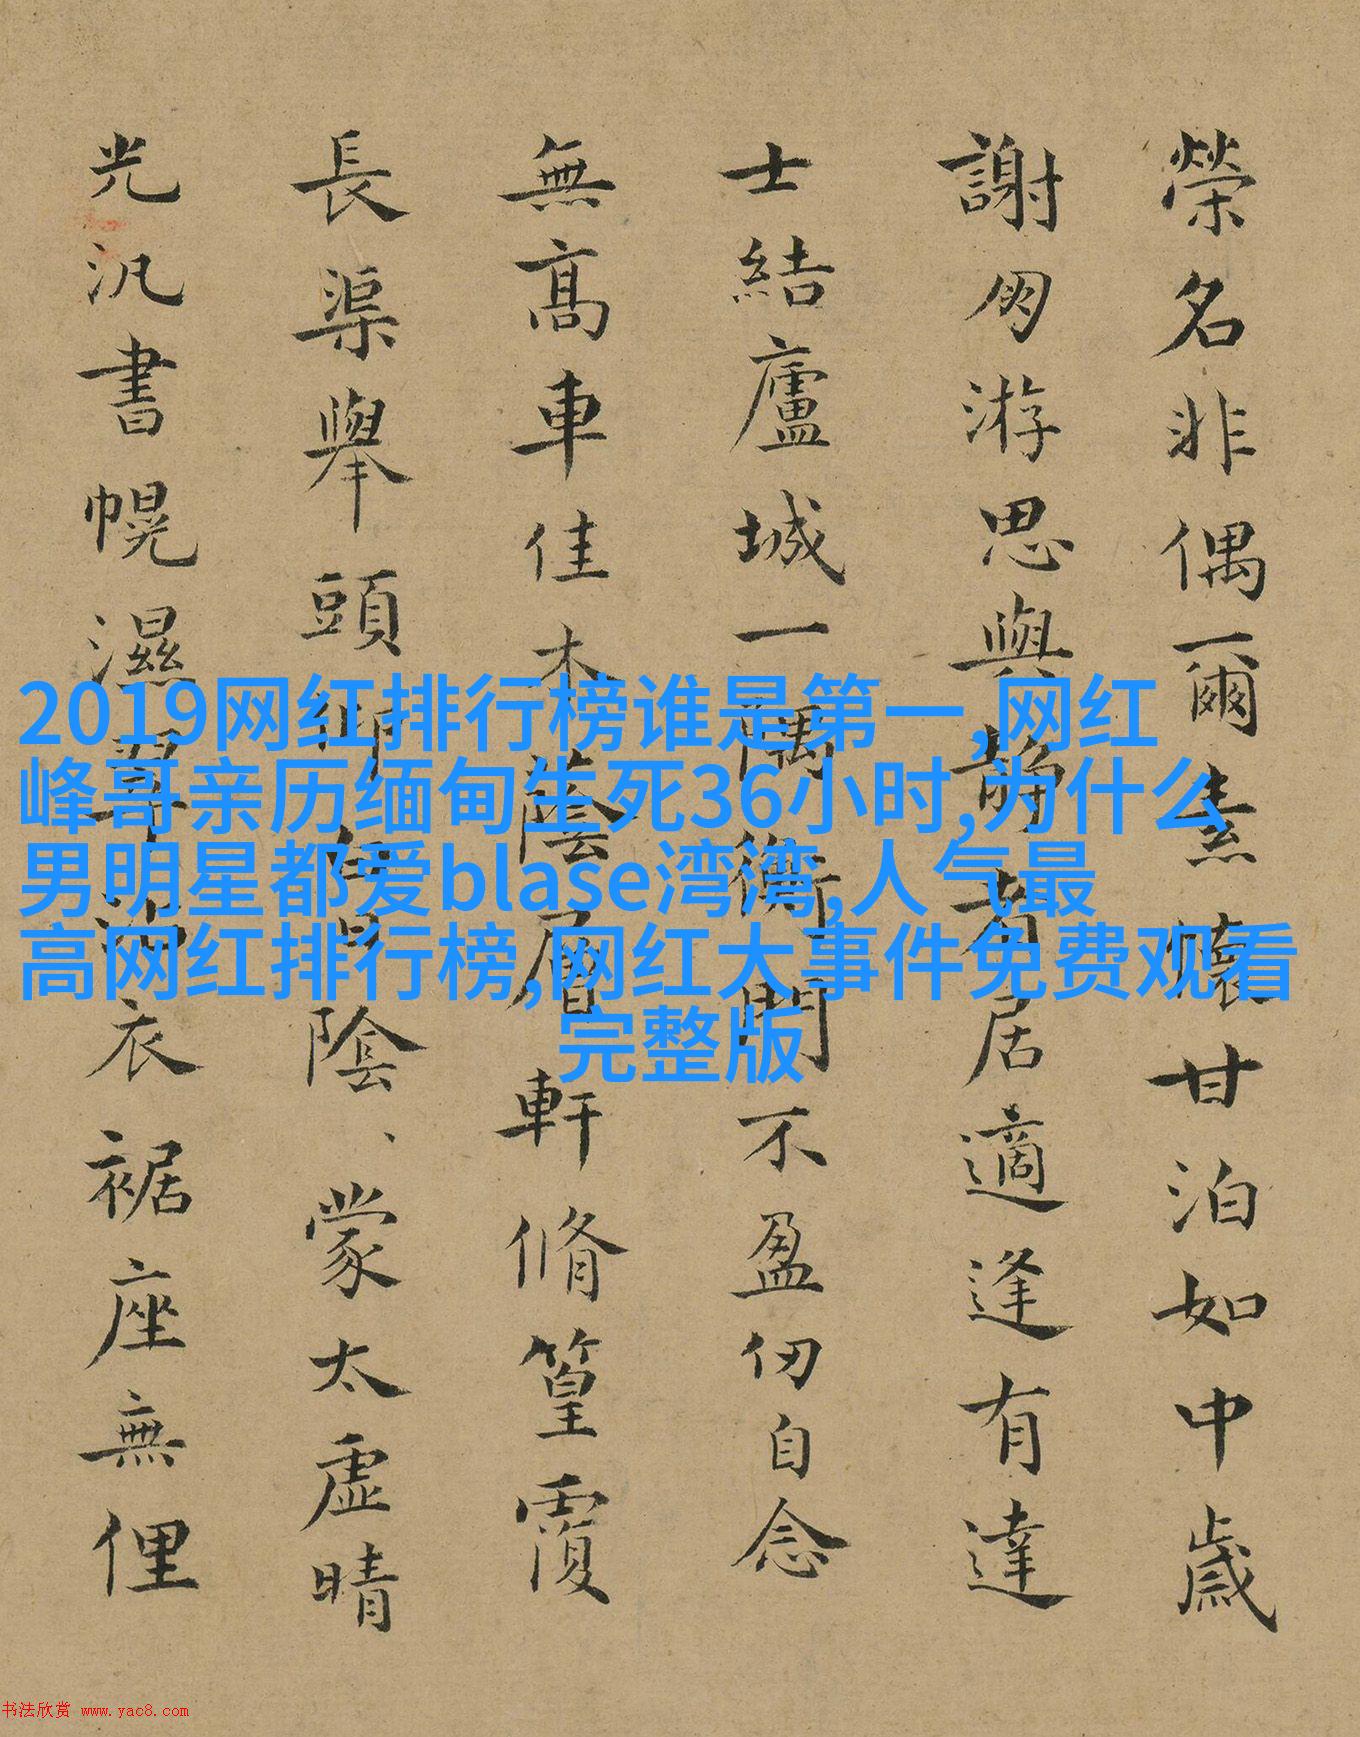 榮名非偶爾素懷甘泊如中歲
謝朋游思與靜者居適逢有達
士結廬城一隅衡門不盈仞自念
無髙車佳木蔭層軒脩篁覆
長渠舉頭日陰、蒙太虛晴
光汎書幌濕翠沾衣裾座無俚
2019网红排行榜谁是第一,网红
峰哥亲历缅甸生死36小时,为什么
男明星都爱blase湾湾,人气最
高网红排行榜,网红大事件免费观看
完整版
书法欣赏 www.yac8.com